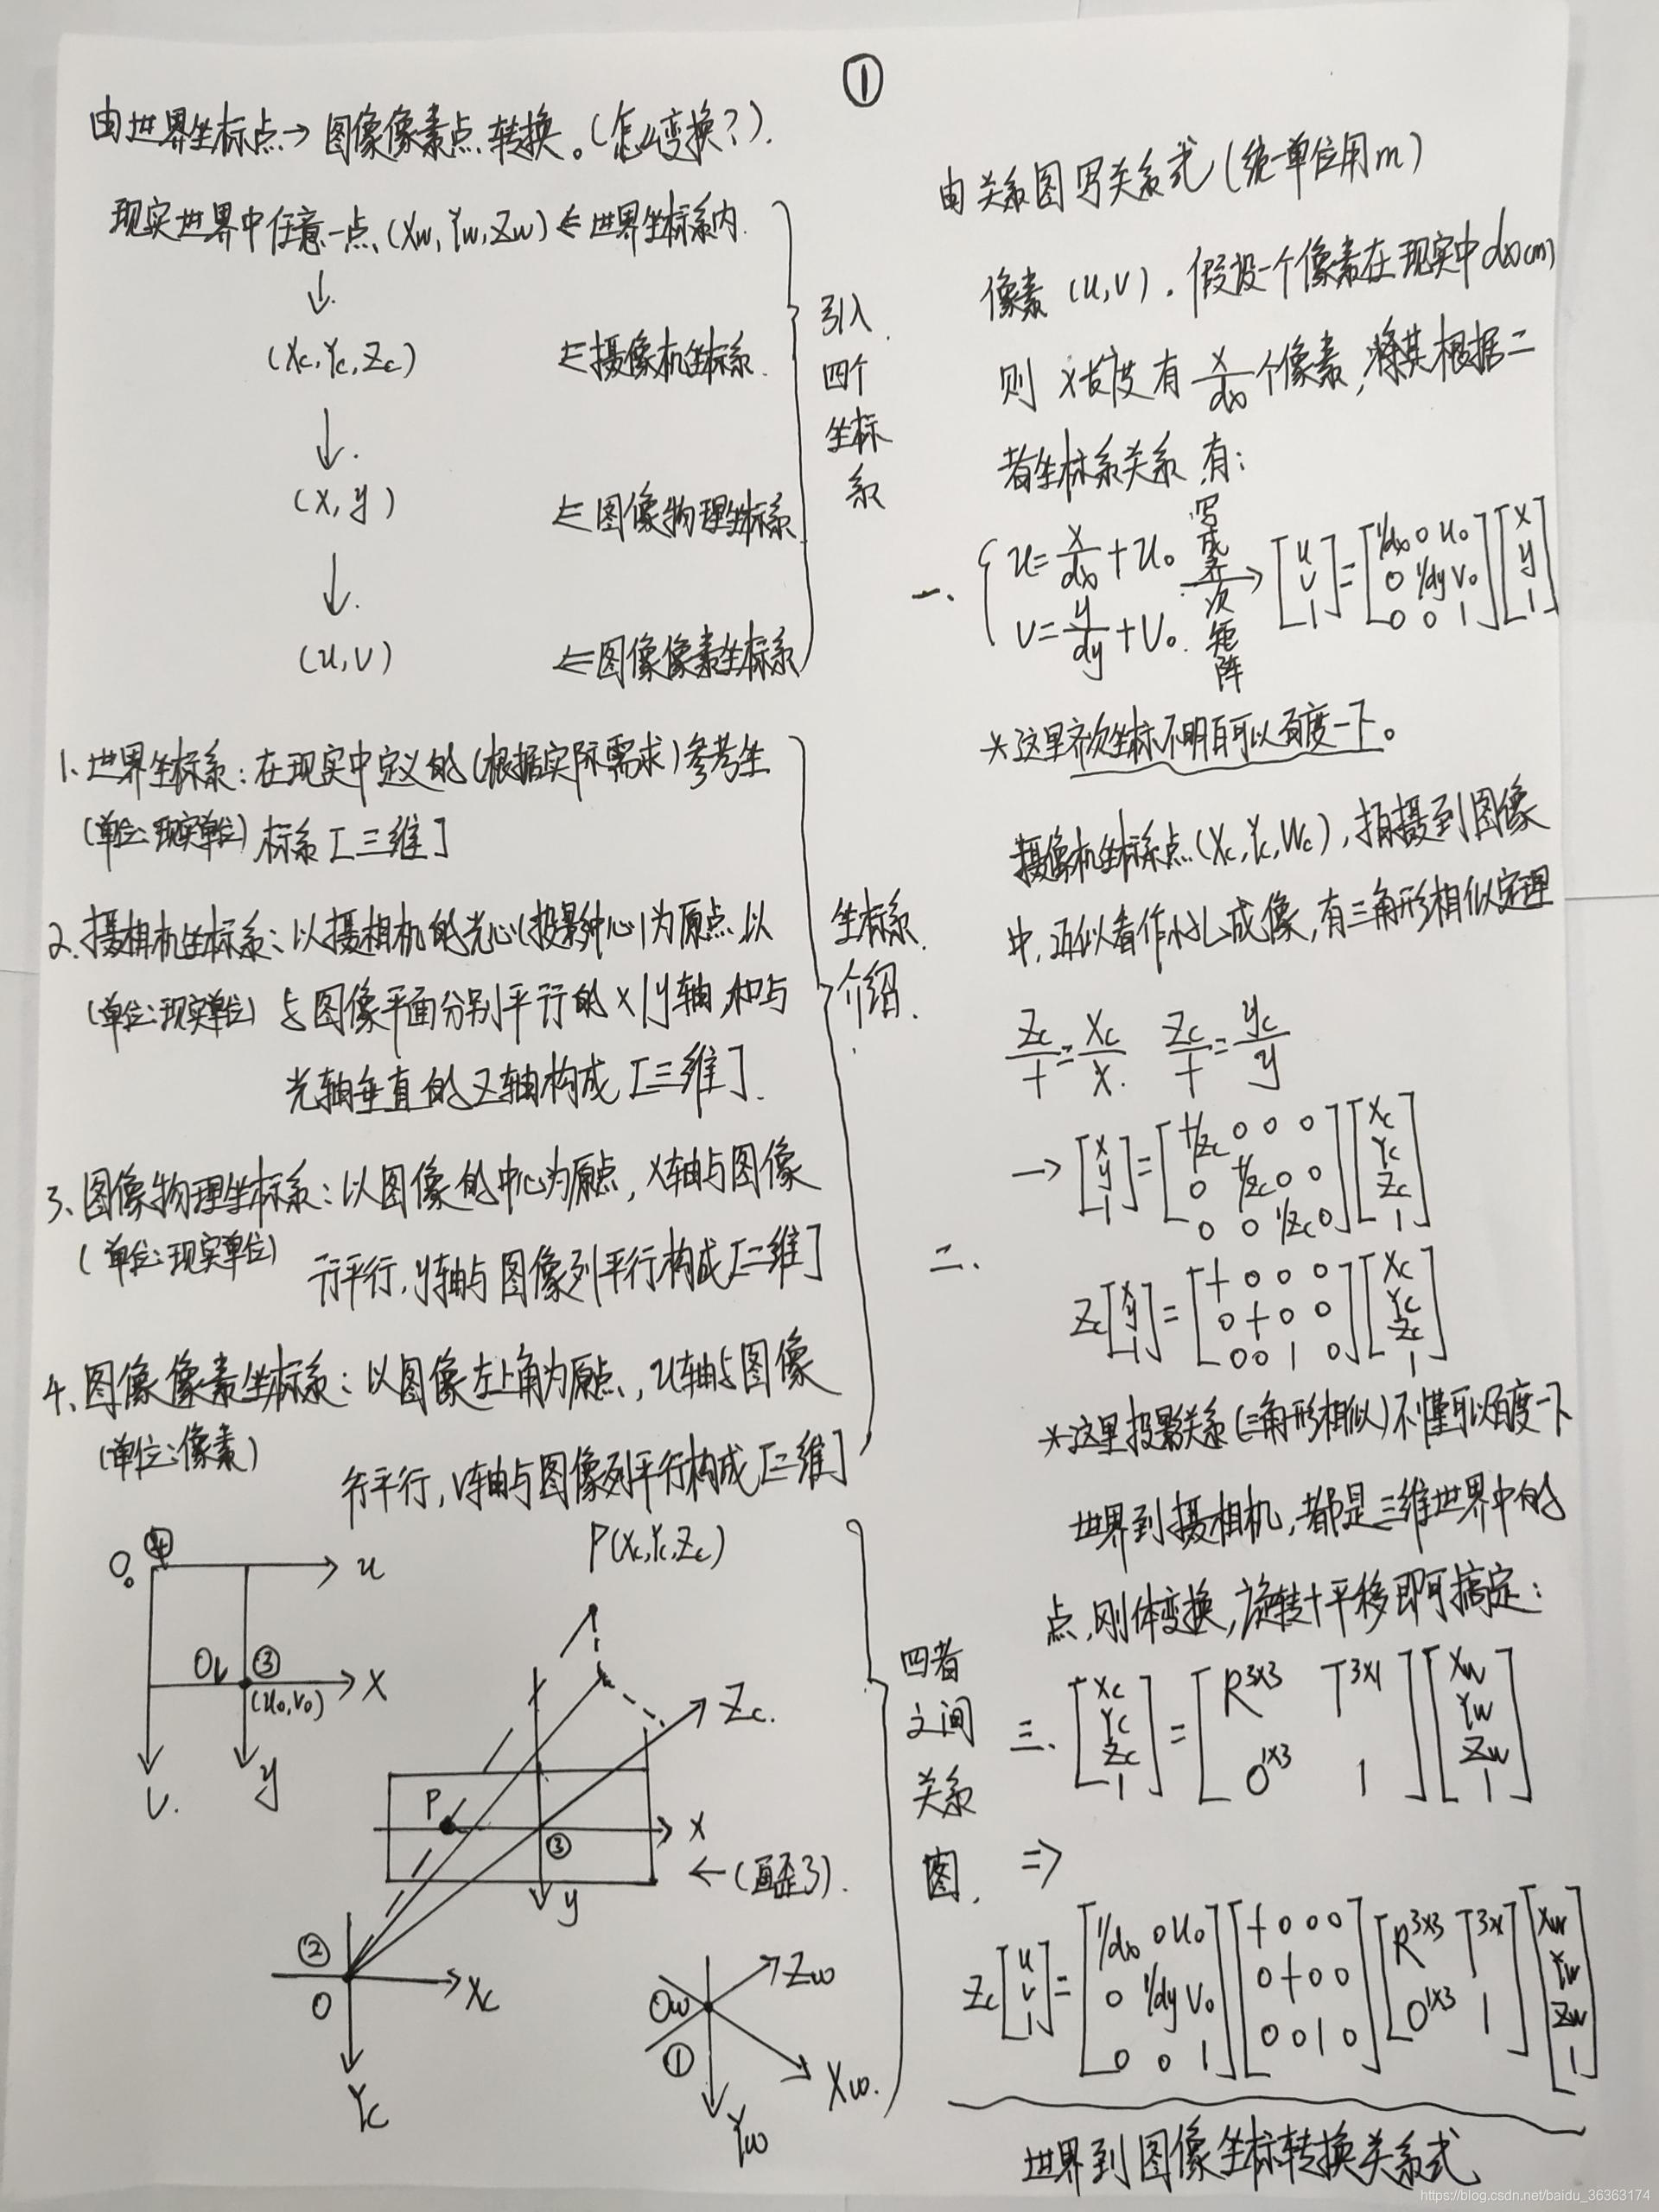 ①
由世界坐标点→图像像素点转换。(怎么变换?).
现实世界中任意一点(Xw,Yw,Zw)⇐世界坐标系内.
↓.
(Xc,Yc,Zc) ⇐摄像机坐标系.
↓.
(x,y) ⇐图像物理坐标系
↓.
(u,v) ⇐图像像素坐标系
引入
四个
坐标
系
1、世界坐标系:在现实中定义的(根据实际需求)参考坐
(单位:现实单位) 标系[三维]
2、摄相机坐标系:以摄相机的光心(投影中心)为原点,以
(单位:现实单位) 与图像平面分别平行的x|y轴,和与
光轴垂直的Z轴构成[三维].
3、图像物理坐标系:以图像的中心为原点,X轴与图像
(单位:现实单位) 行平行,y轴与图像列平行构成[二维]
4、图像像素坐标系:以图像左上角为原点,u轴与图像
(单位:像素)
行平行,v轴与图像列平行构成[二维]
坐标系
介绍.
O₀ ④ u
O₁ ③ X
(u₀,v₀)
v. y
P(Xc,Yc,Zc)
Zc.
P
③ X
y
←(画歪了).
② O Xc
Yc
Ow Zw
① Xw.
Yw
四者
之间
关系
图.
由关系图写关系式(统一单位用m)
像素(u,v).假设一个像素在现实中dx(m)
则x长度有x/dx个像素,将其根据二
者坐标系关系有:
一、 { u=x/dx+u₀ v=y/dy+v₀. 写成齐次矩阵→ [u v 1]=[1/dx 0 u₀ 0 1/dy v₀ 0 0 1][x y 1]
*这里齐次坐标不明白可以百度一下。
摄像机坐标系点(Xc,Yc,Wc),拍摄到图像
中,近似看作小孔成像,有三角形相似定理
Zc/f=Xc/x. Zc/f=yc/y
二、 →[x y 1]=[f/Zc 0 0 0 0 f/Zc 0 0 0 0 1/Zc 0][Xc Yc Zc 1]
Zc[x y 1]=[f 0 0 0 0 f 0 0 0 0 1 0][Xc Yc Zc 1]
*这里投影关系(三角形相似)不懂可以百度一下
世界到摄相机,都是三维世界中的
点,刚体变换,旋转+平移即可搞定:
三、[Xc Yc Zc 1]=[R³ˣ³ T³ˣ¹ 0¹ˣ³ 1][Xw Yw Zw 1]
⇒
Zc[u v 1]=[1/dx 0 u₀ 0 1/dy v₀ 0 0 1][f 0 0 0 0 f 0 0 0 0 1 0][R³ˣ³ T³ˣ¹ 0¹ˣ³ 1][Xw Yw Zw 1]
世界到图像坐标转换关系式
https://blog.csdn.net/baidu_36363174